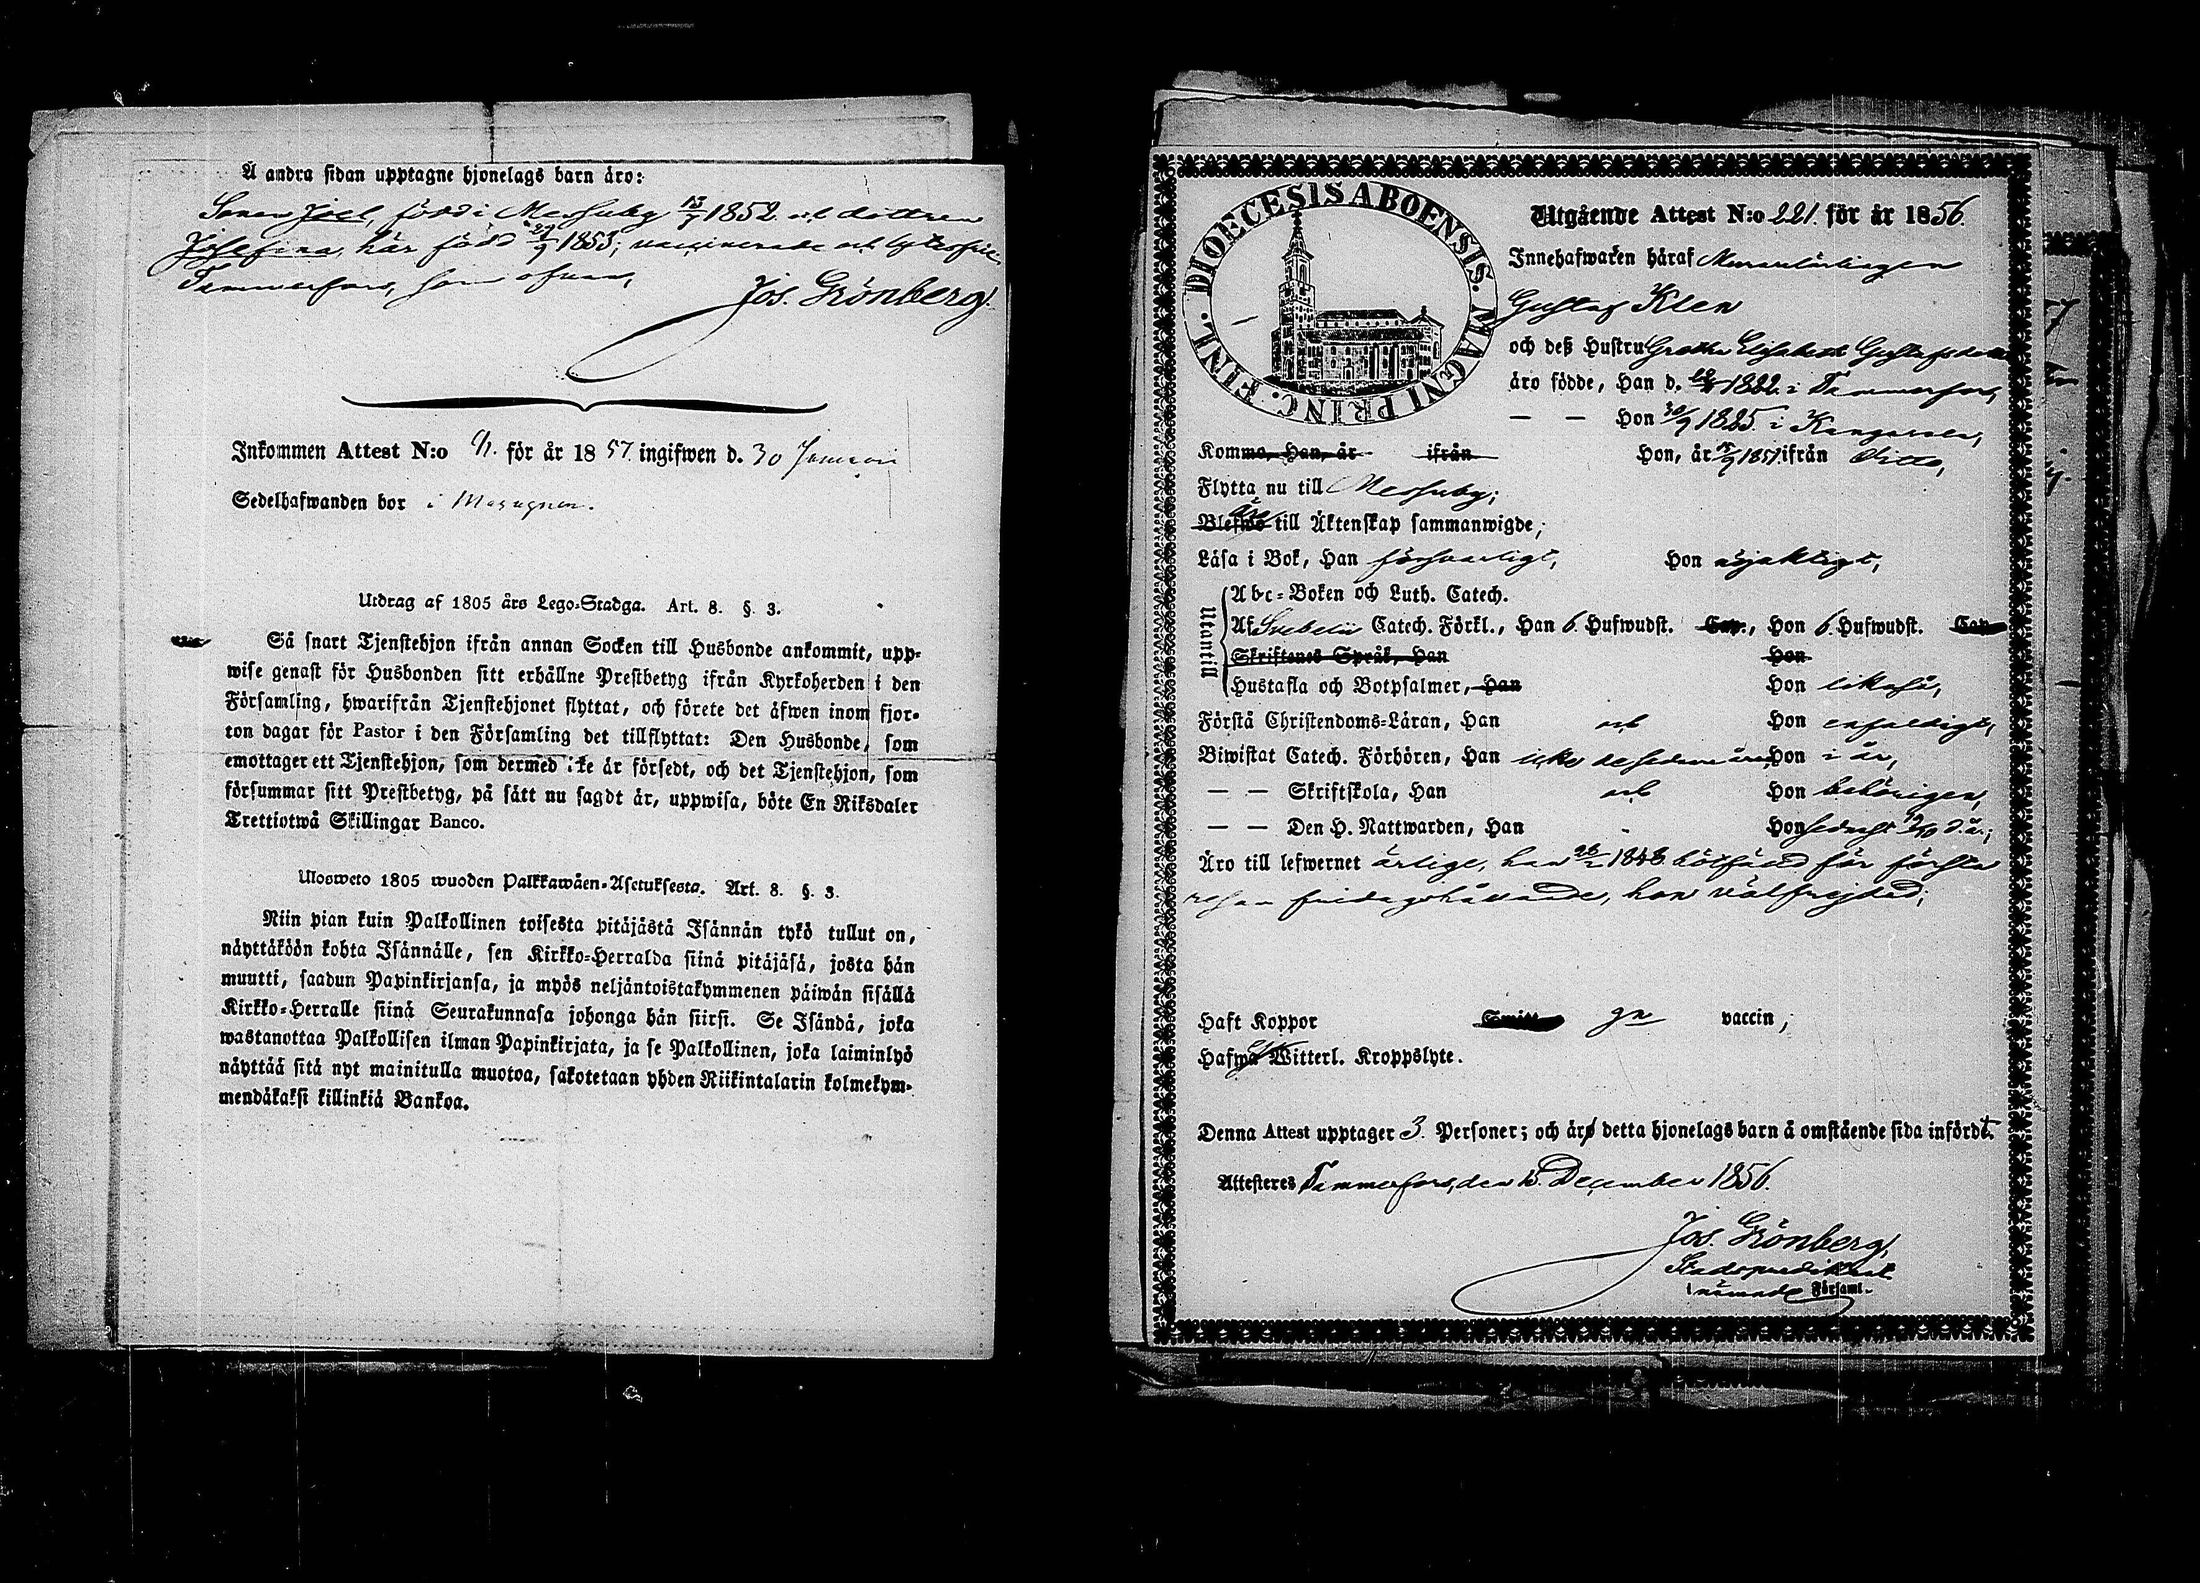 Å andra sidan upptagne hjonelags barn äro:
Sonen Joel, född i Messuby 13/7 1852 och dottren
Josefina, här född 29/9 1853; vaccinerade och lytesfrie.
Tammerfors, som ofvan,
Jos. Grönberg.
Inkommen Attest N:o 11. för år 1857 ingifwen d. 30 Januari
Sedelhafwanden bor i
Utdrag af 1805 års Lego-Stadga. Art. 8. §. 3.
Så snart Tjenstehjon ifrån annan Socken till Husbonde ankommit, upp-
wise genast för Husbonden sitt erhållne Prestbetyg ifrån Kyrkoherden i den
Församling, hwarifrån Tjenstehjonet flyttat, och förete det äfwen inom fjor-
ton dagar för Pastor i den Församling det tillflyttat: Den Husbonde, som
emottager ett Tjenstehjon, som dermed icke är försedt, och det Tjenstehjon, som
försummar sitt Prestbetyg, på sätt nu sagdt är, uppwisa, böte En Riksdaler
Trettiotwå Skillingar Banco.
Ulosweto 1805 wuoden Palkkawäen-Asetuksesta. Art. 8. §. 3.
Niin pian kuin Palkollinen toisesta pitäjästä Isännän tykö tullut on,
näyttäköön kohta Isännälle, sen Kirkko-Herralda siinä pitäjäsä, josta hän
muutti, saadun Papinkirjansa, ja myös neljäntoistakymmenen päiwän sisällä
Kirkko-Herralle siinä Seurakunnasa johonga hän siirsi. Se Isändä, joka
wastanottaa Palkollisen ilman Papinkirjata, ja se Palkollinen, joka laiminlyö
näyttää sitä nyt mainitulla muotoa, sakotetaan yhden Riikintalarin kolmekym-
mendäkaksi killinkiä Bankoa.
DIOECESIS ABOENSIS. MAGNI PRINC. FINL.
Utgående Attest N:o 221. för år 1856.
Innehafwaren häraf Murarelärlingen
Gustaf Klen
och deß Hustru Greta Elisabeth Gustafsdotter
äro födde, Han d. 1822. i Tammerfors,
— — Hon 30/9 1825. i Kangasala,
Komma, Han, år ifrån Hon, år 1851 ifrån ditto,
Flytta nu till Messuby;
Blefwo äro till Äktenskap sammanwigde;
Läsa i Bok, Han försvarligt, Hon nöjaktigt,
Utantill
Abc-Boken och Luth. Catech.
Af Svebelii Catech. Förkl., Han 6. Hufwudst. Cap., Hon 6. Hufwudst. Cap
Skriftenes Språk, Han Hon
Hustafla och Botpsalmer, Han Hon likaså,
Förstå Christendoms-Läran, Han och Hon enfaldigt,
Biwistat Catech. Förhören, Han icke de sednare åren, Hon i år,
— — Skriftskola, Han och Hon behörigen,
— — Den H. Nattwarden, Han - Hon sednast 12/10 d. å.;
Äro till lefwernet ärlige, han 1848. bötfälld för första
resan fridagshållande, hon välfrejdad;
Haft Koppor Smitt gn vaccin;
Hafwa Witterl. Kroppslyte.
Denna Attest upptager 3. Personer; och äro detta hjonelags barn å omstående sida införde.
Attesteres Tammerfors, den 15. December 1856.
Jos. Grönberg,
Stadspredikant
i nämnde Församl.